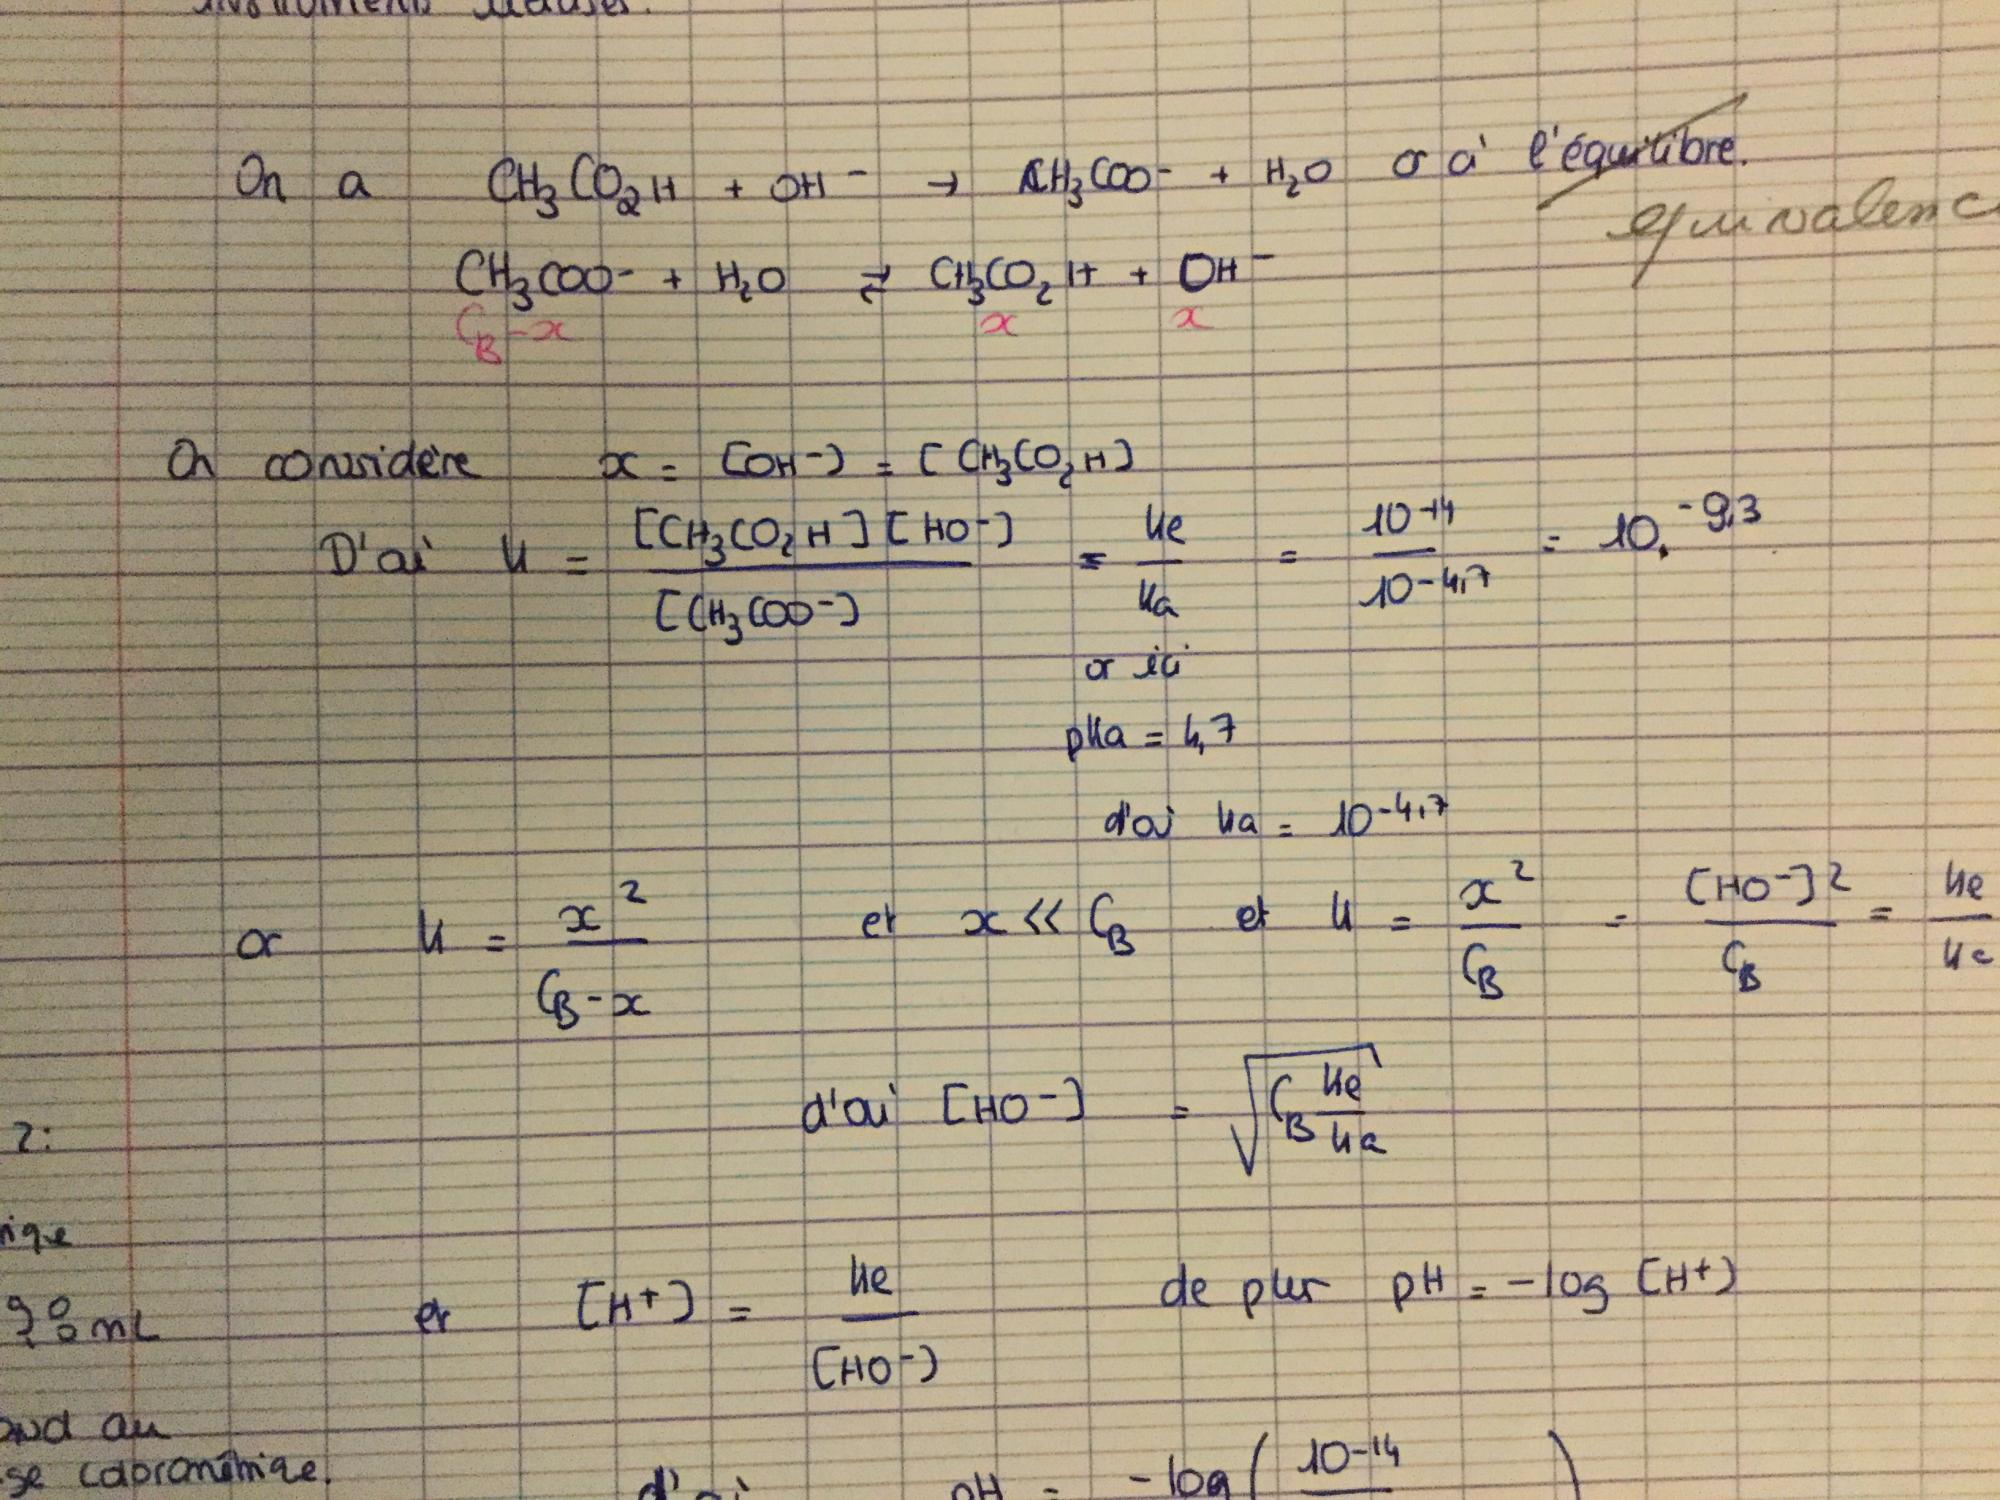 On a CH₃CO₂H + OH⁻ → CH₃COO⁻ + H₂O or à l'équilibre.
equivalenc
CH₃COO⁻ + H₂O ⇄ CH₃CO₂H + OH⁻
C_B - x x x
On considère x = [OH⁻] = [CH₃CO₂H]
D'où K = [CH₃CO₂H][HO⁻] / [CH₃COO⁻] = Ke / Ka = 10⁻¹⁴ / 10⁻⁴,⁷ = 10⁻⁹,³
or ici
pKa = 4,7
d'où Ka = 10⁻⁴,⁷
or K = x² / (C_B - x) et x << C_B et K = x² / C_B = [HO⁻]² / C_B = Ke / Ka
d'où [HO⁻] = √(C_B Ke / Ka)
2:
ique
et [H⁺] = Ke / [HO⁻] de plus pH = -log [H⁺]
mL
ond au
se colorimétrique.
d'où pH = -log ( 10⁻¹⁴